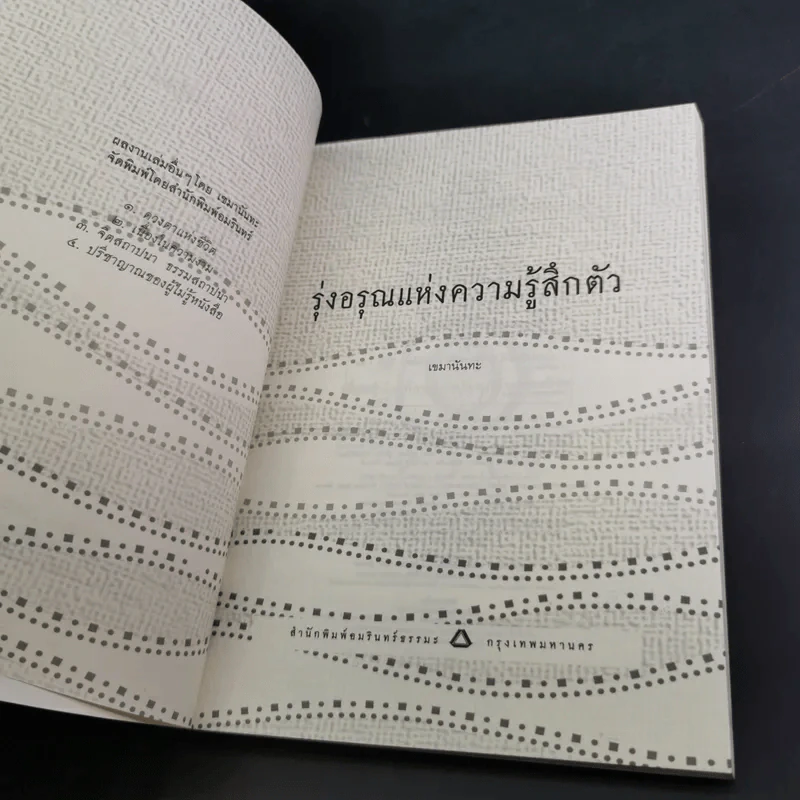 ผลงานเล่มอื่นๆ โดย เขมานันทะ
จัดพิมพ์โดยสำนักพิมพ์อมรินทร์
๑. ดวงตาแห่งชีวิต
๒. เนื่องในความงาม
๓. จิตสถาปนา ธรรมสถาปนา
๔. ปรีชาญาณของผู้ไม่รู้หนังสือ
รุ่งอรุณแห่งความรู้สึกตัว
เขมานันทะ
สำนักพิมพ์อมรินทร์ธรรมะ กรุงเทพมหานคร